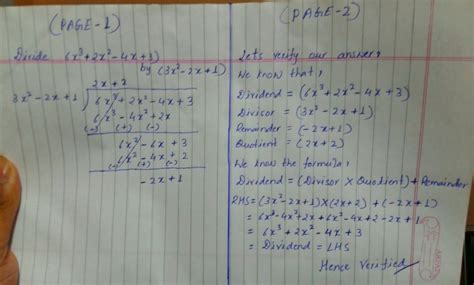 (PAGE-1)
Divide (6x³+2x²-4x+3)
by (3x²-2x+1)
2x+2
3x²-2x+1) 6x³+2x²-4x+3
6x³-4x²+2x
(-) (+) (-)
6x²-6x+3
6x²-4x+2
(-) (+) (-)
-2x+1
(PAGE-2)
Lets verify our answer:
We know that,
Dividend = (6x³+2x²-4x+3)
Divisor = (3x²-2x+1)
Remainder = (-2x+1)
Quotient = (2x+2)
We know the formula:
Dividend = (Divisor X Quotient)+Remainder
RHS=(3x²-2x+1)X(2x+2)+(-2x+1)
= 6x³-4x²+2x+6x²-4x+2-2x+1
= 6x³+2x²-4x+3
= Dividend = LHS
Hence Verified